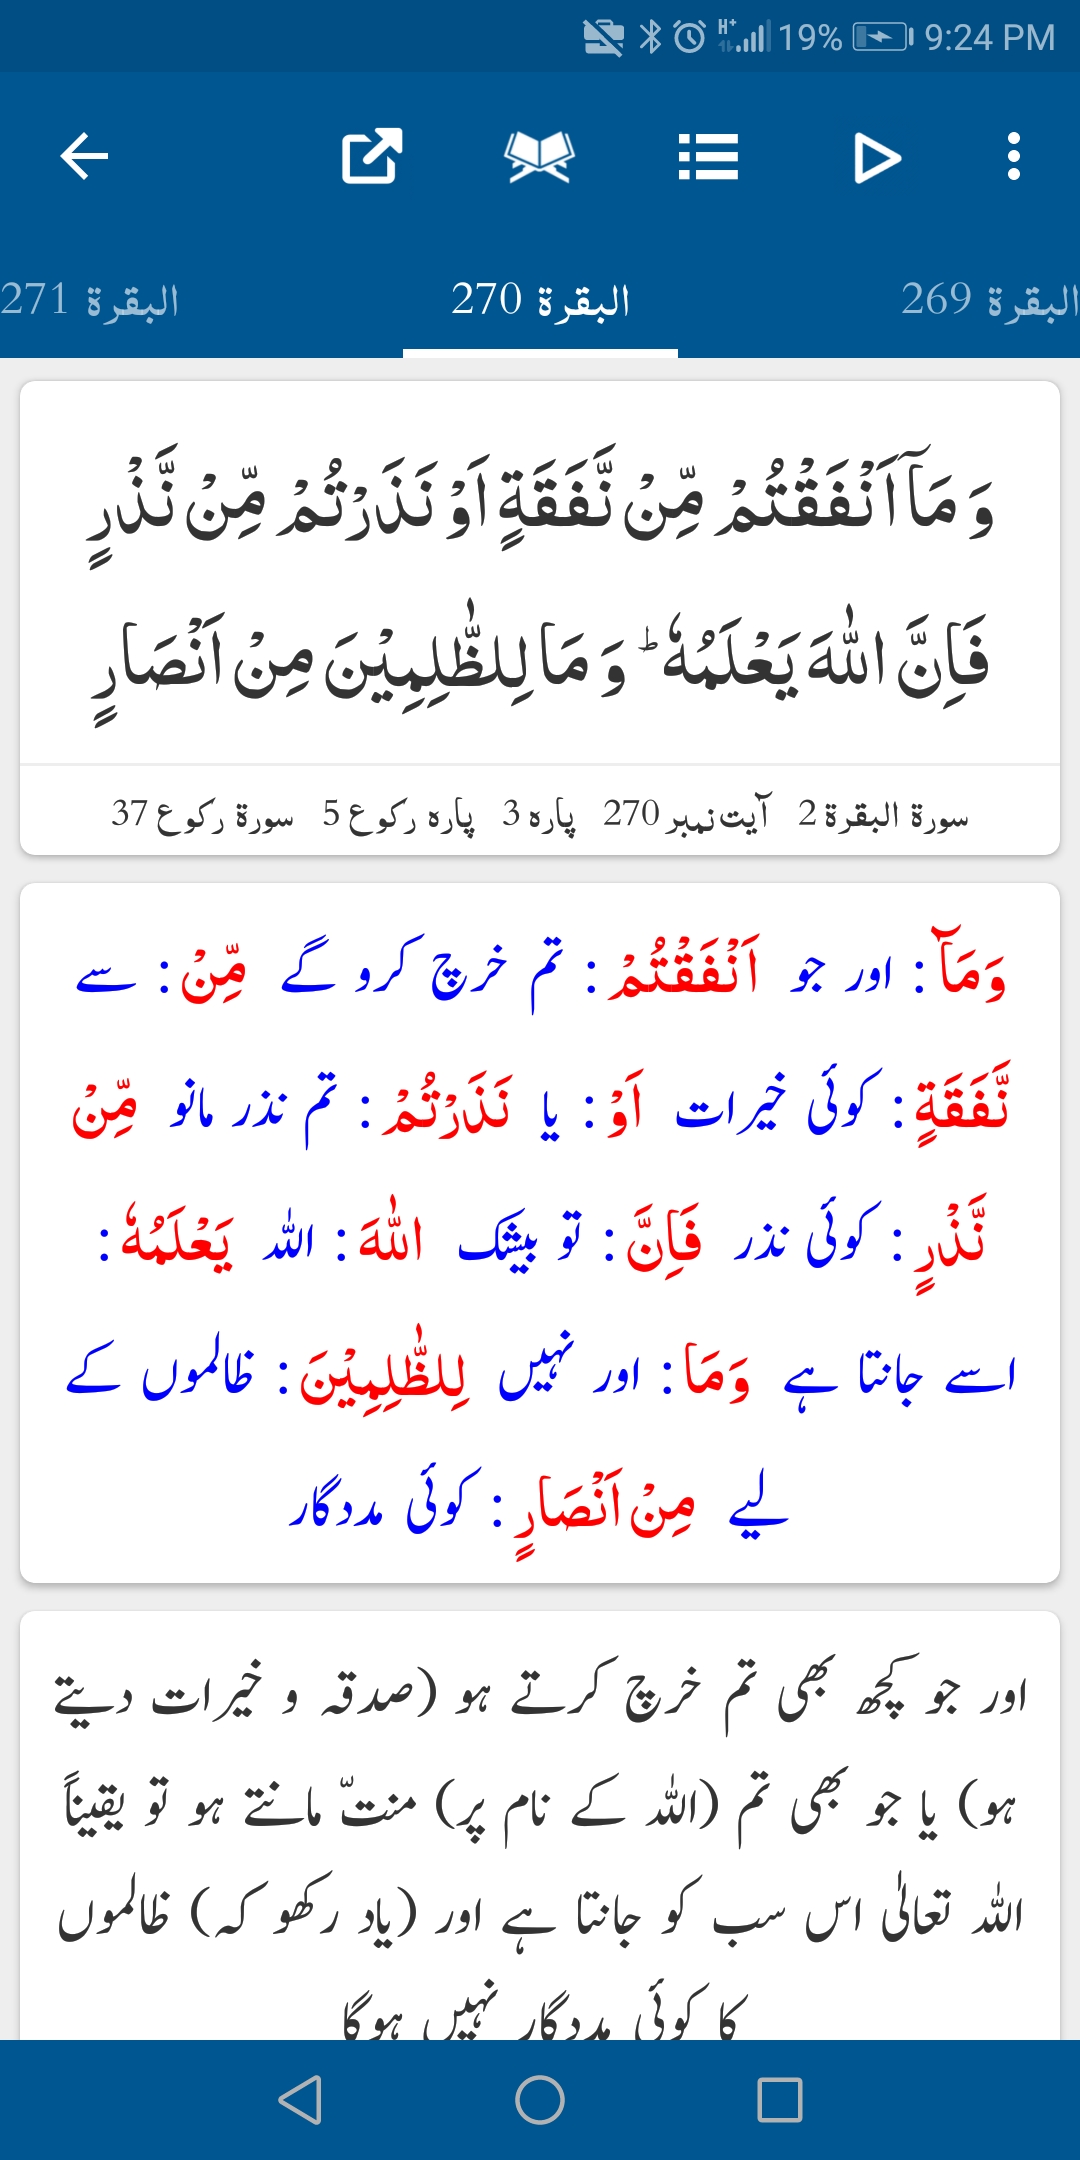 19% 9:24 PM
البقرة 269 البقرة 270 البقرة 271
وَ مَاۤ اَنْفَقْتُمْ مِّنْ نَّفَقَةٍ اَوْ نَذَرْتُمْ مِّنْ نَّذْرٍ
فَاِنَّ اللّٰهَ یَعْلَمُهٗ ؕ وَ مَا لِلظّٰلِمِیْنَ مِنْ اَنْصَارٍ
سورة البقرة 2 آیت نمبر 270 پارہ 3 پارہ رکوع 5 سورة رکوع 37
وَمَآ : اور جو اَنْفَقْتُمْ : تم خرچ کرو گے مِّنْ : سے
نَّفَقَةٍ : کوئی خیرات اَوْ : یا نَذَرْتُمْ : تم نذر مانو مِّنْ
نَّذْرٍ : کوئی نذر فَاِنَّ : تو بیشک اللّٰهَ : اللہ يَعْلَمُهٗ :
اسے جانتا ہے وَمَا : اور نہیں لِلظّٰلِمِيْنَ : ظالموں کے
لیے مِنْ اَنْصَارٍ : کوئی مددگار
اور جو کچھ بھی تم خرچ کرتے ہو (صدقہ و خیرات دیتے
ہو) یا جو بھی تم (اللہ کے نام پر) منتّ مانتے ہو تو یقیناً
اللہ تعالیٰ اس سب کو جانتا ہے اور (یاد رکھو کہ) ظالموں
کا کوئی مددگار نہیں ہوگا